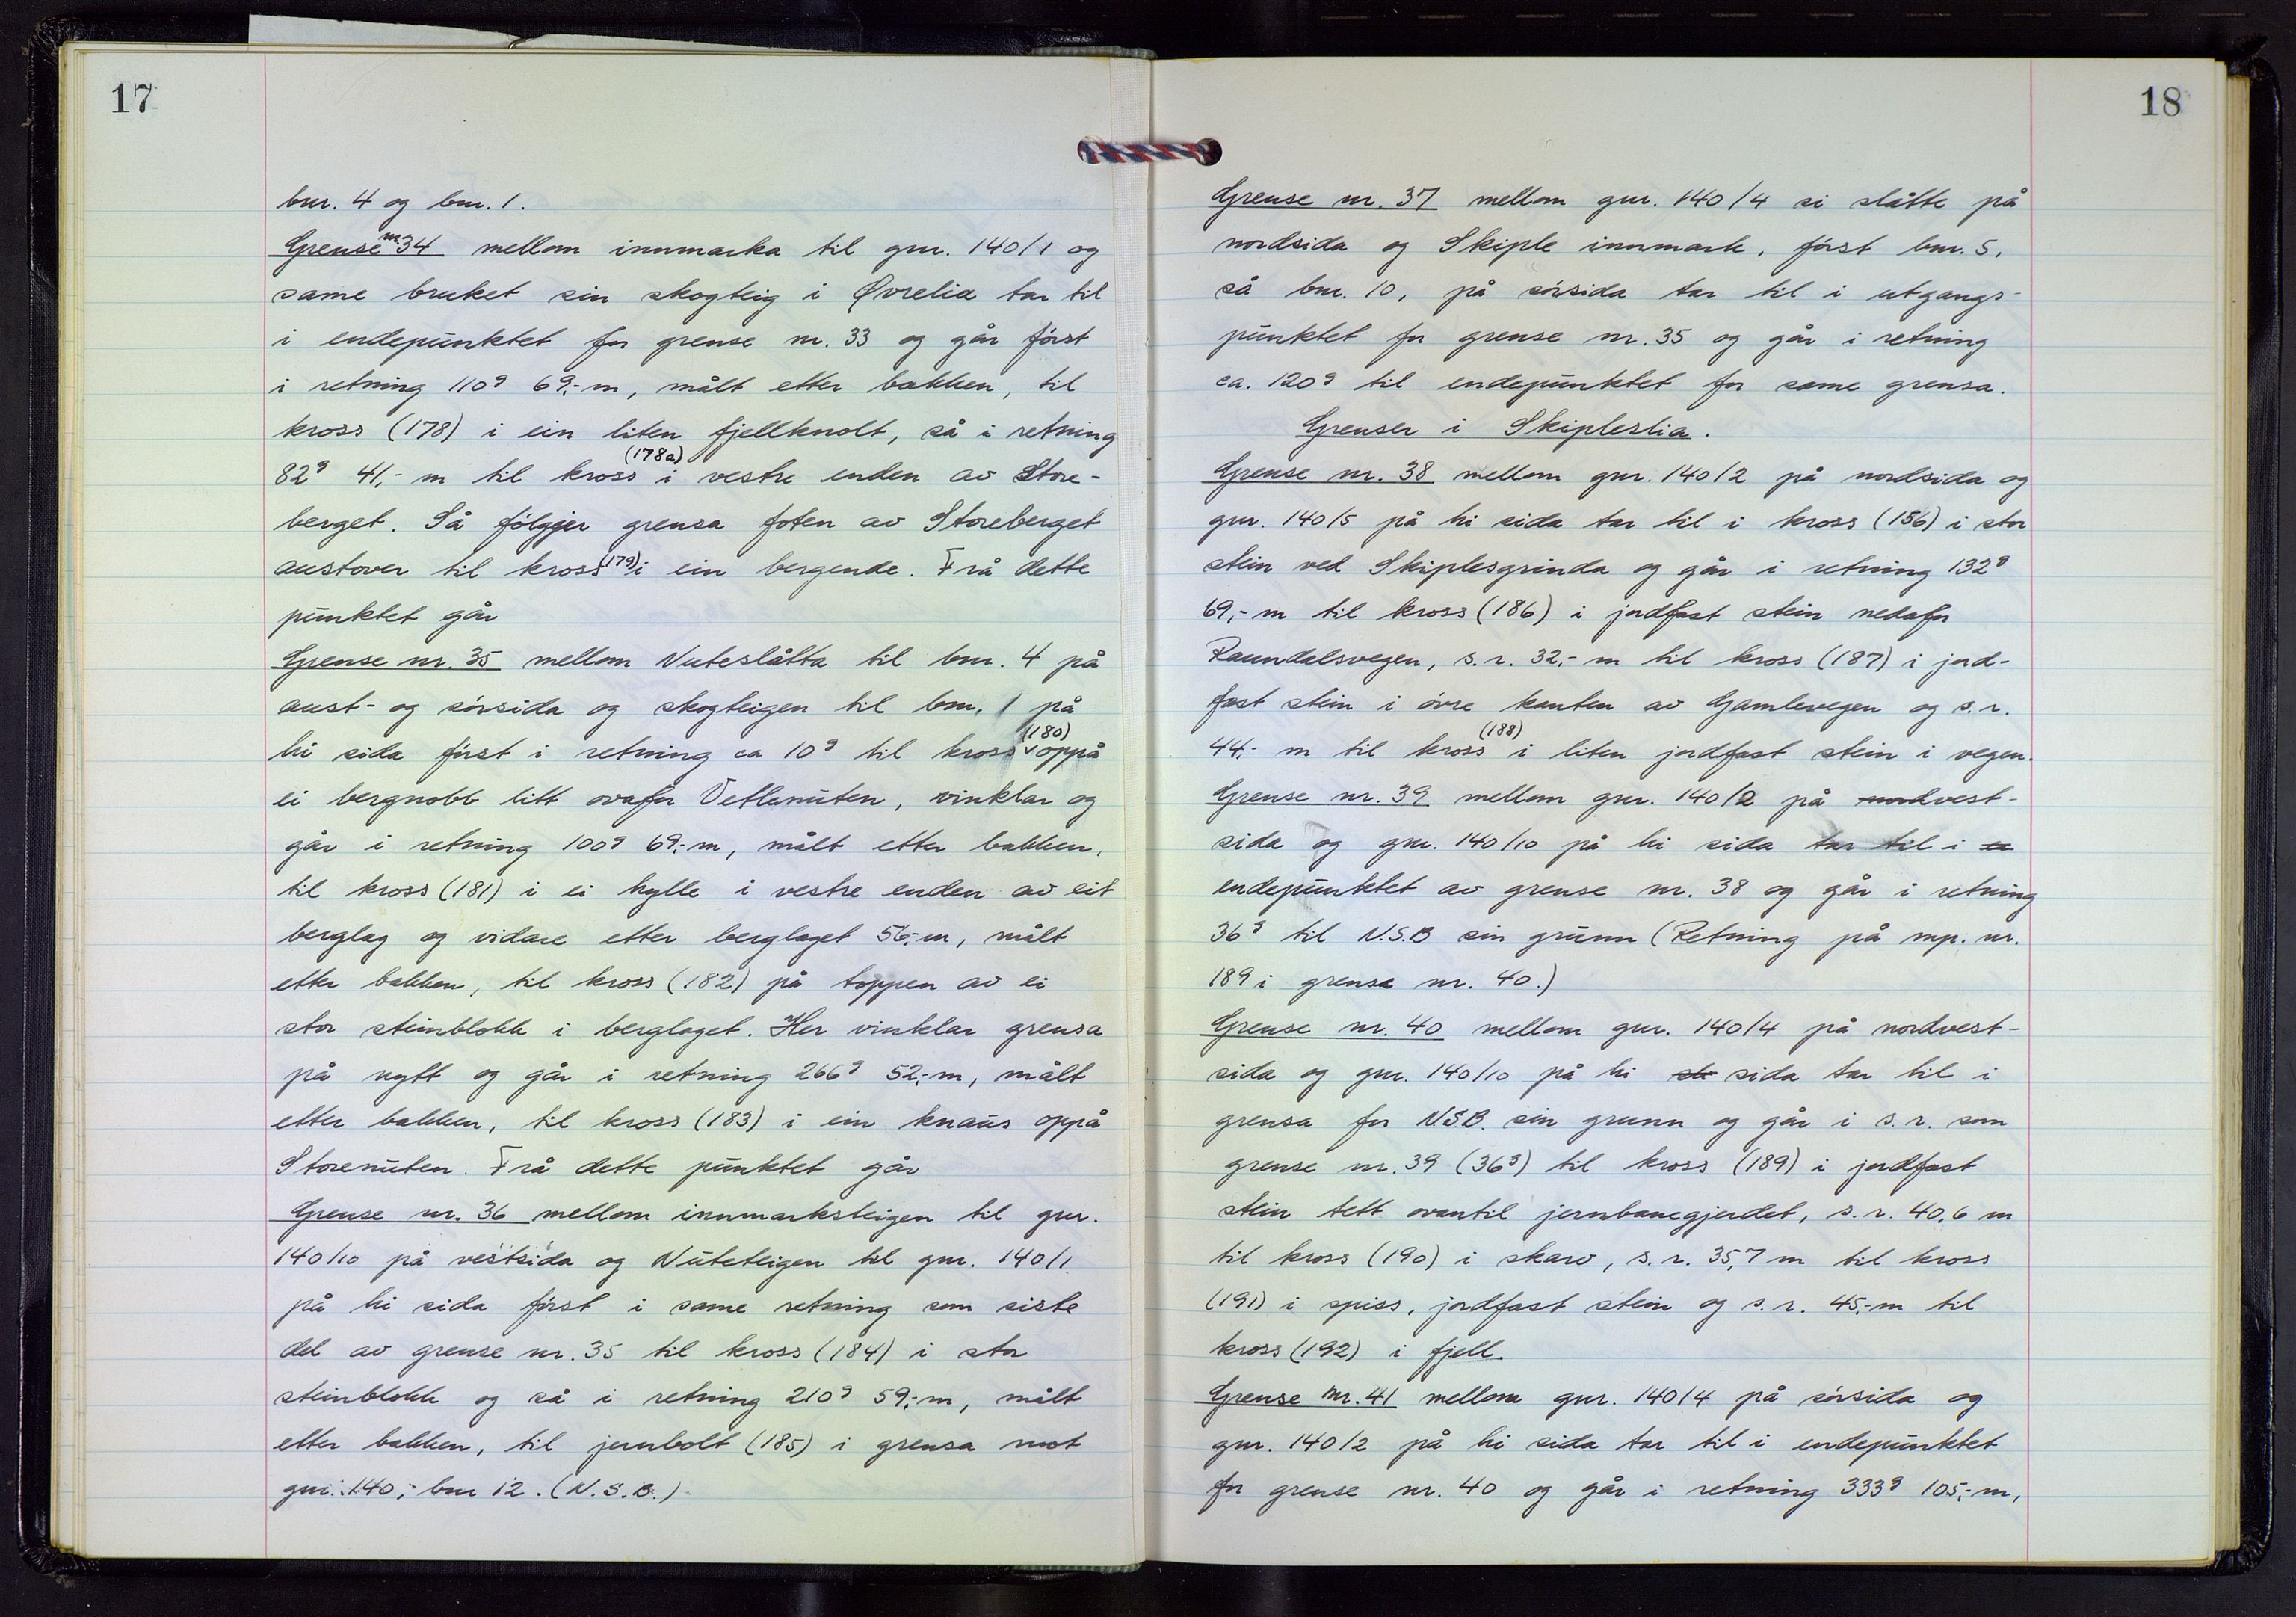 17
bnr. 4 og bnr. 1.
Grense nr. 34 mellom innmarka til gnr. 140/1 og
same bruket sin skogteig i Øvrelia tar til
i endepunktet for grense nr. 33 og går först
i retning 110g 69,- m, målt etter bakken, til
kross (178) i ein liten fjellknolt, så i retning
82g 41,- m til kross (178a) i vestre enden av Store-
berget. Så fölgjer grensa foten av Storeberget
austover til kross (179) i ein bergende. Frå dette
punktet går
Grense nr. 35 mellom Nuteslåtta til bnr. 4 på
aust- og sörsida og skogteigen til bnr. 1 på
hi sida först i retning ca 10g til kross (180) oppå
ei bergnobb litt ovafor Vetlenuten, vinklar og
går i retning 100g 69,- m, målt etter bakken,
til kross (181) i ei hylle i vestre enden av eit
berglag og vidare etter berglaget 56,- m, målt
etter bakken, til kross (182) på toppen av ei
stor steinblokk i berglaget. Her vinklar grensa
på nytt og går i retning 266g 52,- m, målt
etter bakken, til kross (183) i ein knaus oppå
Storenuten. Frå dette punktet går
Grense nr. 36 mellom innmarksteigen til gnr.
140/10 på vestsida og Nuteteigen til gnr. 140/1
på hi sida först i same retning som siste
del av grense nr. 35 til kross (184) i stor
steinblokk og så i retning 210g 59,- m, målt
etter bakken, til jernbolt (185) i grensa mot
gnr. 140,- bnr 12. (N.S.B.)
18
Grense nr. 37 mellom gnr. 140/4 si slåtte på
nordsida og Skiple innmark, först bnr. 5,
så bnr. 10, på sörsida tar til i utgangs-
punktet for grense nr. 35 og går i retning
ca. 120g til endepunktet for same grensa.
Grenser i Skipleslia.
Grense nr. 38 mellom gnr. 140/2 på nordsida og
gnr. 140/5 på hi sida tar til i kross (156) i stor
stein ved Skiplesgrinda og går i retning 132g
69,- m til kross (186) i jordfast stein nedafor
Raundalsvegen, s.r. 32,- m til kross (187) i jord-
fast stein i övre kanten av Gamlevegen og s.r.
44,- m til kross (188) i liten jordfast stein i vegen.
Grense nr. 39 mellom gnr. 140/2 på nordvest-
sida og gnr. 140/10 på hi sida tar til i
endepunktet av grense nr. 38 og går i retning
36g til N.S.B sin grunn (Retning på mp. nr.
189 i grensa nr. 40.)
Grense nr. 40 mellom gnr. 140/4 på nordvest-
sida og gnr. 140/10 på hi sida tar til i
grensa for N.S.B. sin grunn og går i s.r. som
grense nr. 39 (36g) til kross (189) i jordfast
stein tett ovantil jernbanegjerdet, s.r. 40,6 m
til kross (190) i skarv, s.r. 35,7 m til kross
(191) i spiss, jordfast stein og s.r. 45,- m til
kross (192) i fjell.
Grense nr. 41 mellom gnr. 140/4 på sörsida og
gnr. 140/2 på hi sida tar til i endepunktet
for grense nr. 40 og går i retning 333g 105,- m,